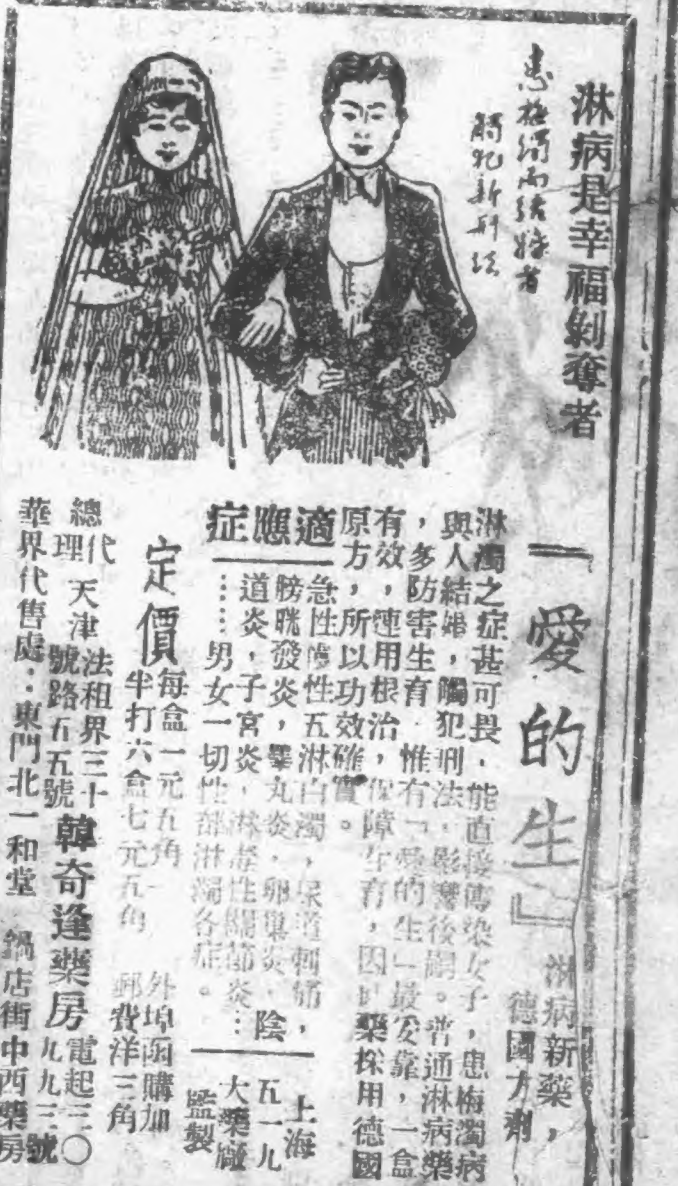 淋病是幸福剝奪者
患梅濁而結婚者
觸犯新刑法
『愛的生』
淋病新藥，
德國方劑
淋濁之症甚可畏，能直接傳染女子，患梅濁病
與人結婚，觸犯刑法，影響後嗣。普通淋病藥
，多防害生育，惟有「愛的生」最安靠，一盒
有效，連用根治，保障生育，因此藥採用德國
原方，所以功效確實。
適應症
急性慢性五淋白濁，尿道刺痛，
膀胱發炎，睪丸炎，卵巢炎，陰
道炎，子宮炎，淋毒性關節炎…
……男女一切性部淋濁各症。
上海
五一九
大藥廠
監製
定價
每盒一元五角
半打六盒七元五角
外埠函購加
郵費洋三角
總代理
天津法租界三十
號路五五號
韓奇逢藥房
電起三〇
九九三號
華界代售處：東門北一和堂 鍋店街中西藥房